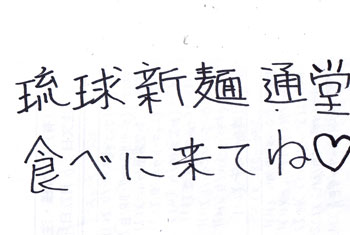 琉球新麺通堂
食べに来てね♡